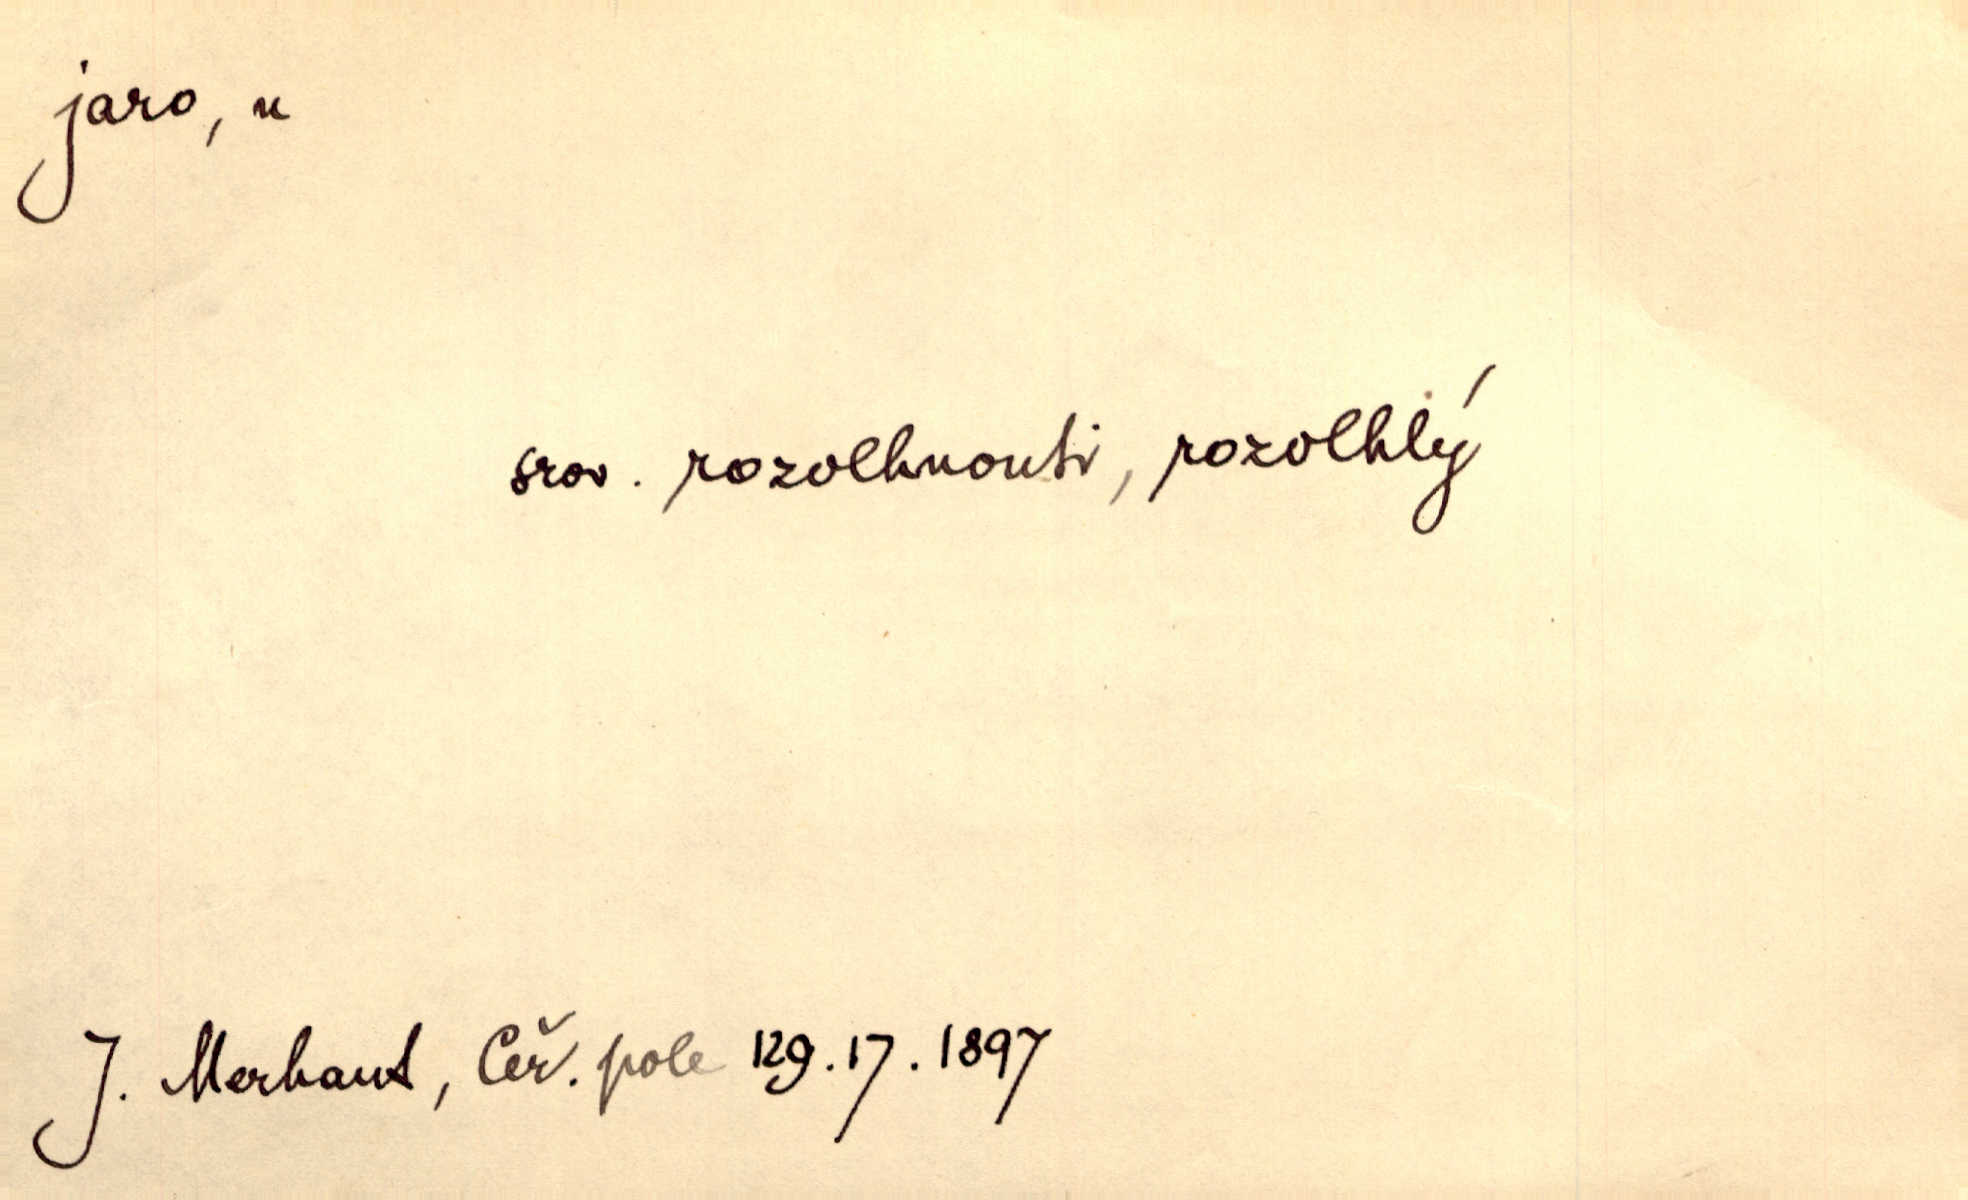 jaro, n
srov. rozvlhnouti, rozvlhlý
J. Merhaut, Čer. pole 129.17.1897